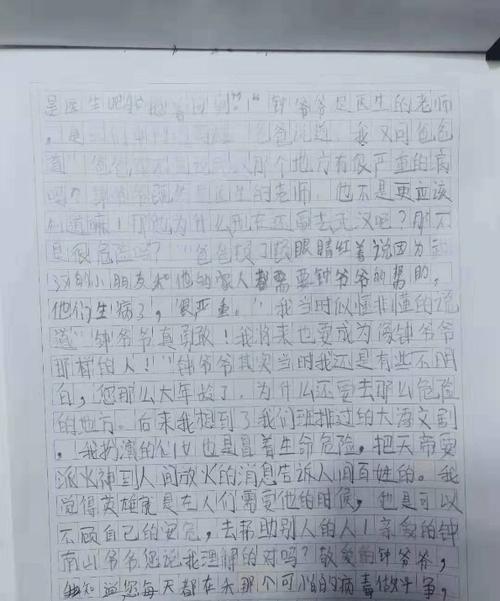 是医生吧？"他答回到"！"钟爷爷是医生的老师
，是 爸爸说道。我又问爸爸
道"爸爸 那个地方有很严重的病
吗？钟爷爷既然是医生的老师，也不是更应该
知道嘛！那他为什么现在还要去武汉吧？那不
是很危险吗？"爸爸 眼睛红着说因为武
汉的小朋友和他的家人都需要钟爷爷的帮助，
他们生病了，很严重。"我当时似懂非懂的说
道"钟爷爷真勇敢！我将来也要成为像钟爷爷
那样的人！"钟爷爷其实当时我还是有些不明
白，您那么大年龄了，为什么还要去那么危险
的地方。后来我想到了我们班排过的大语文剧
，我扮演的 也是冒着生命危险，把天帝要
派火神到人间放火的消息告诉人间百姓的。我
觉得英雄就是在人们需要他的时候，也是可以
不顾自己的安危，去帮助别人的人！亲爱的钟
南山爷爷您说我理解的对吗？敬爱的钟爷爷，
我知道您每天都在和那个可 的病毒做斗争，